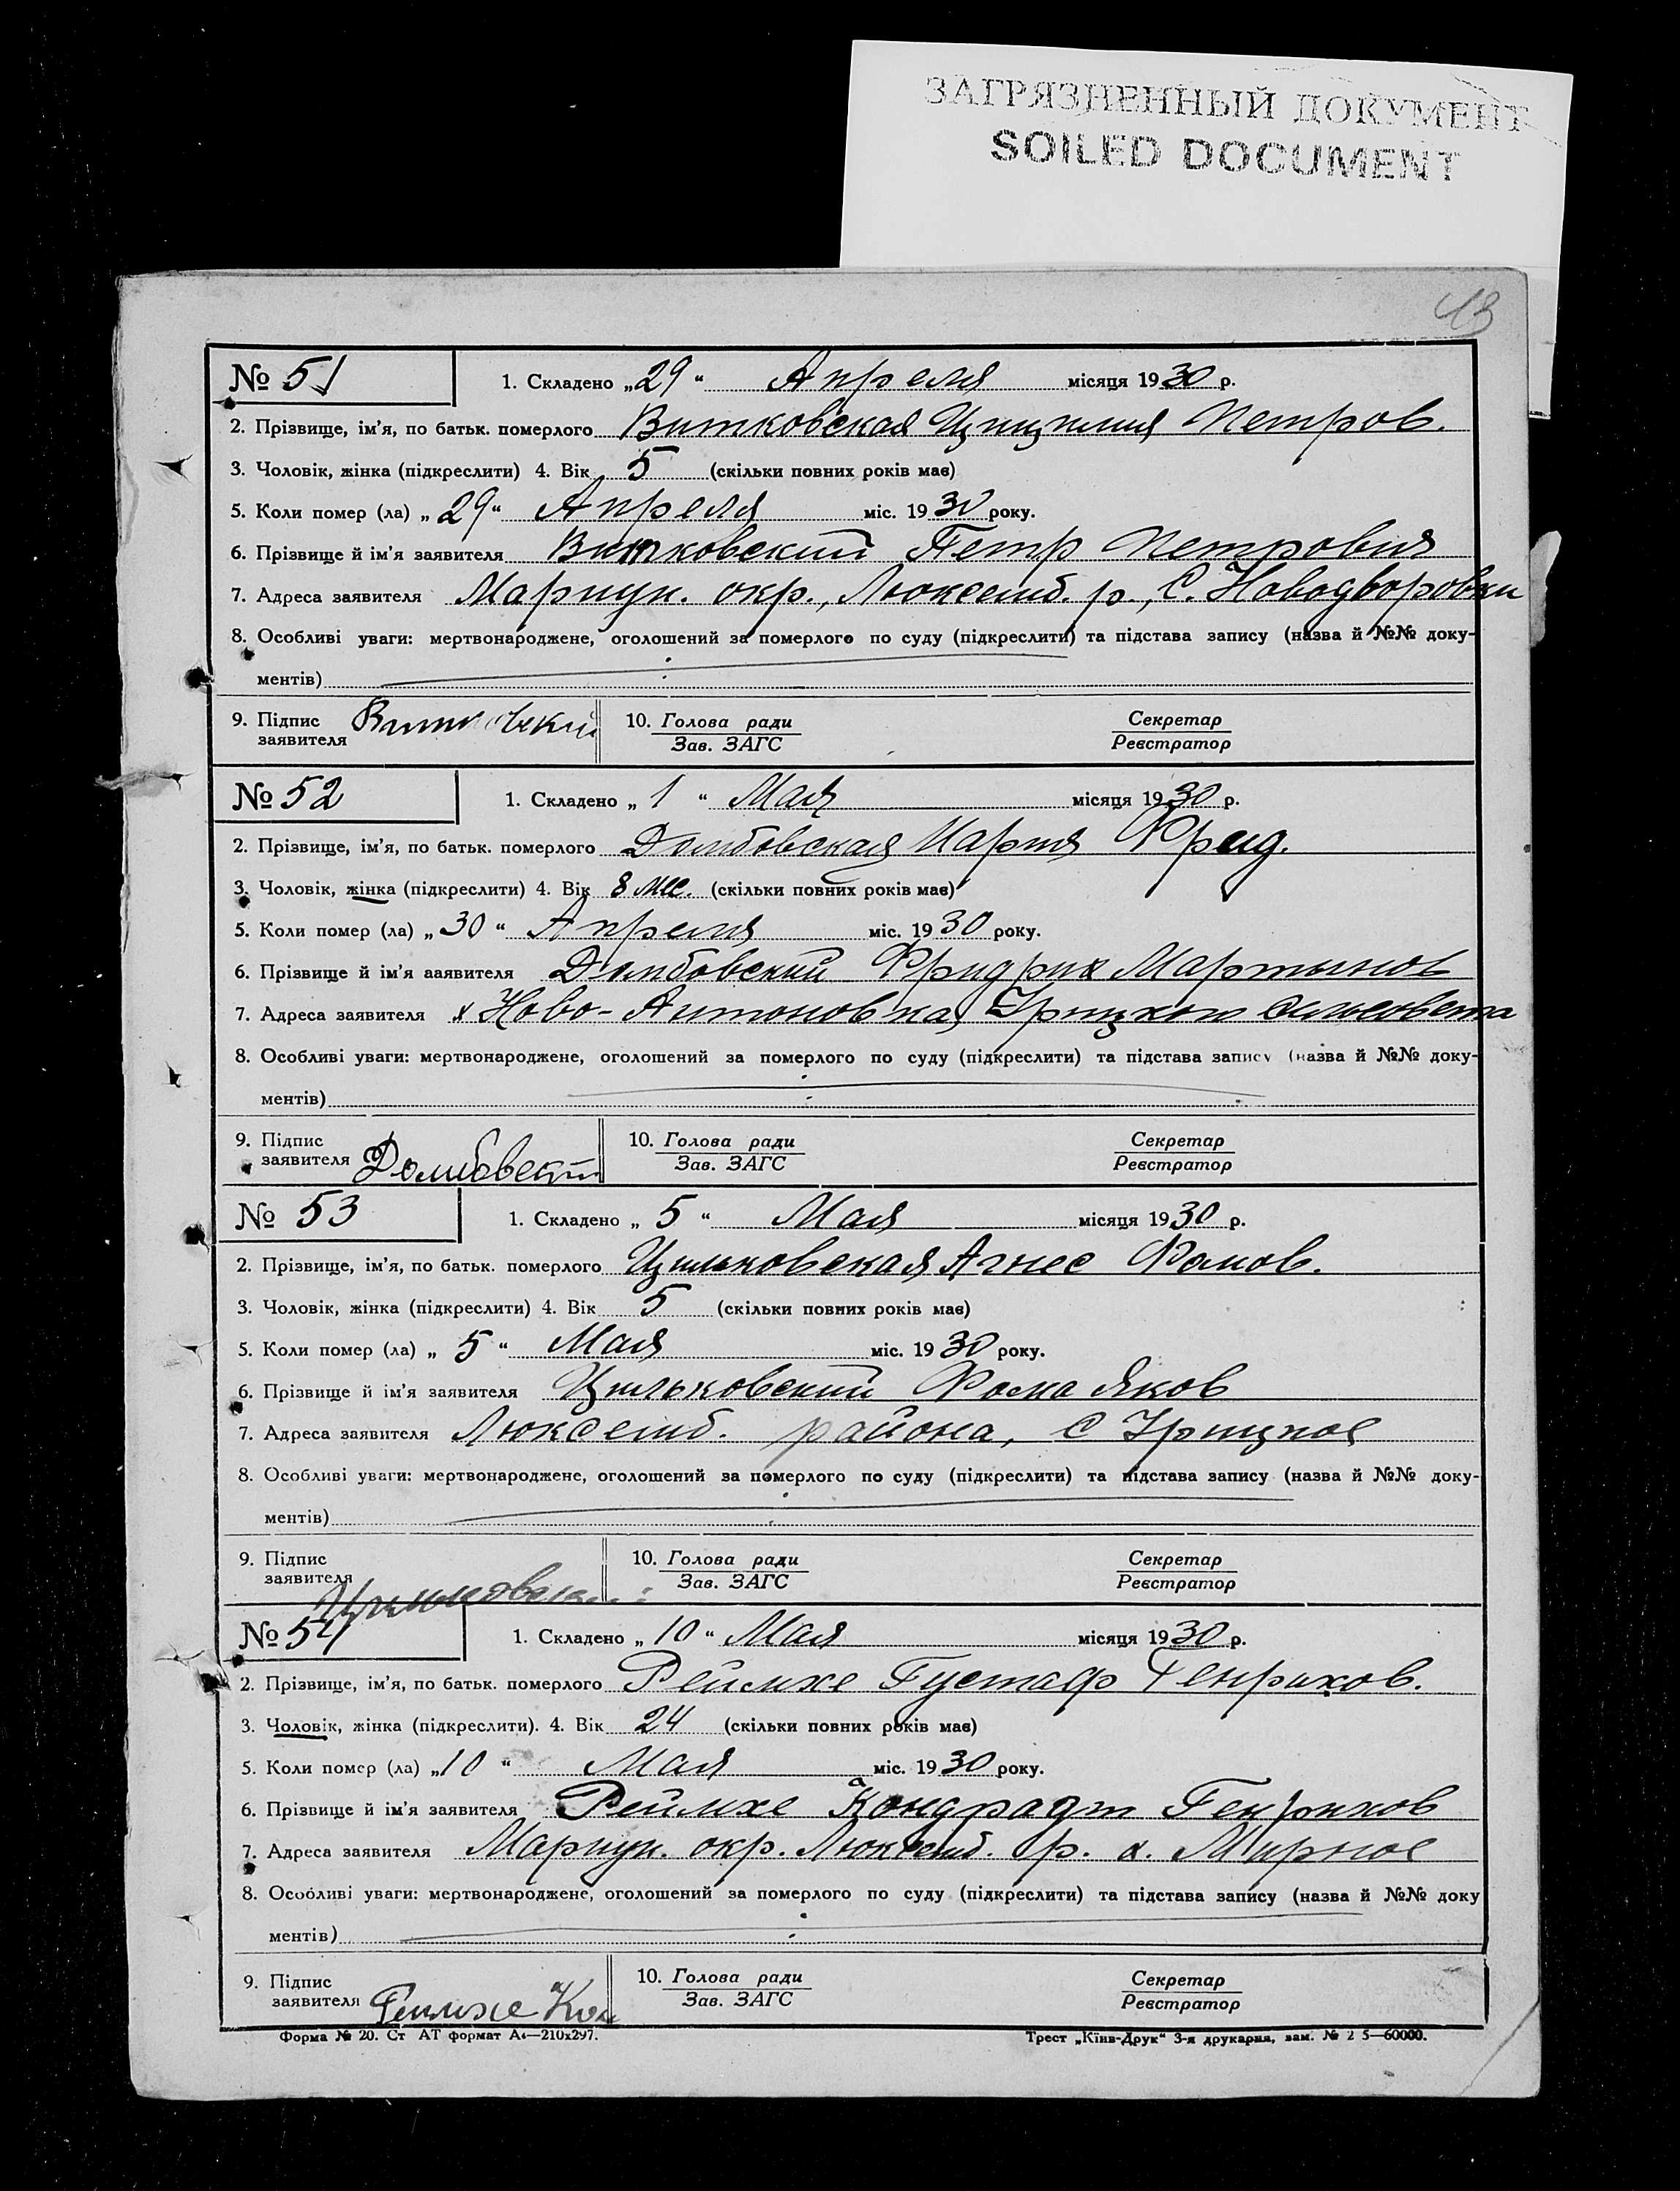 ЗАГРЯЗНЕННЫЙ ДОКУМЕНТ
SOILED DOCUMENT
13
№ 51 1. Складено „29“ Апреля місяця 1930 р.
2. Прізвище, ім'я, по батьк. померлого Витковская Цицилия Петров.
3. Чоловік, жінка (підкреслити) 4. Вік 5 (скільки повних років має)
5. Коли помер (ла) „29“ Апреля міс. 1930 року.
6. Прізвище й ім'я заявителя Витковский Петр Петрович
7. Адреса заявителя Мариуп. окр., Люксемб. р., С. Новодворовки
8. Особливі уваги: мертвонароджене, оголошений за померлого по суду (підкреслити) та підстава запису (назва й №№ доку-
ментів)
9. Підпис заявителя Витковский 10. Голова ради Зав. ЗАГС Секретар Реєстратор
№ 52 1. Складено „1“ Мая місяця 1930 р.
2. Прізвище, ім'я, по батьк. померлого Домбовская Мария Фрид.
3. Чоловік, жінка (підкреслити) 4. Вік 8 мес. (скільки повних років має)
5. Коли помер (ла) „30“ Апреля міс. 1930 року.
6. Прізвище й ім'я заявителя Домбовский Фридрих Мартынов
7. Адреса заявителя х Ново-Антоновка, Урицкого сельсовета
8. Особливі уваги: мертвонароджене, оголошений за померлого по суду (підкреслити) та підстава запису (назва й №№ доку-
ментів)
9. Підпис заявителя Домбовский 10. Голова ради Зав. ЗАГС Секретар Реєстратор
№ 53 1. Складено „5“ Мая місяця 1930 р.
2. Прізвище, ім'я, по батьк. померлого Цильковская Агнес Фомов.
3. Чоловік, жінка (підкреслити) 4. Вік 5 (скільки повних років має)
5. Коли помер (ла) „5“ Мая міс. 1930 року.
6. Прізвище й ім'я заявителя Цильковский Фома Яков
7. Адреса заявителя Люксемб. района, С Урицкое
8. Особливі уваги: мертвонароджене, оголошений за померлого по суду (підкреслити) та підстава запису (назва й №№ доку-
ментів)
9. Підпис заявителя 10. Голова ради Зав. ЗАГС Секретар Реєстратор
№ 54 1. Складено „10“ Мая місяця 1930 р.
2. Прізвище, ім'я, по батьк. померлого Реймхе Густаф Генрихов.
3. Чоловік, жінка (підкреслити). 4. Вік 24 (скільки повних років має)
5. Коли помер (ла) „10“ Мая міс. 1930 року.
6. Прізвище й ім'я заявителя Реймхе Кондрадт Генрихов
7. Адреса заявителя Мариуп. окр. Люксемб. р. х. Мирное
8. Особливі уваги: мертвонароджене, оголошений за померлого по суду (підкреслити) та підстава запису (назва й №№ доку
ментів)
9. Підпис заявителя Реимхе 10. Голова ради Зав. ЗАГС Секретар Реєстратор
Форма № 20. Ст АТ формат А4—210х297. Трест „Київ-Друк“ 3-я друкарня, зам. № 2 5—60000.